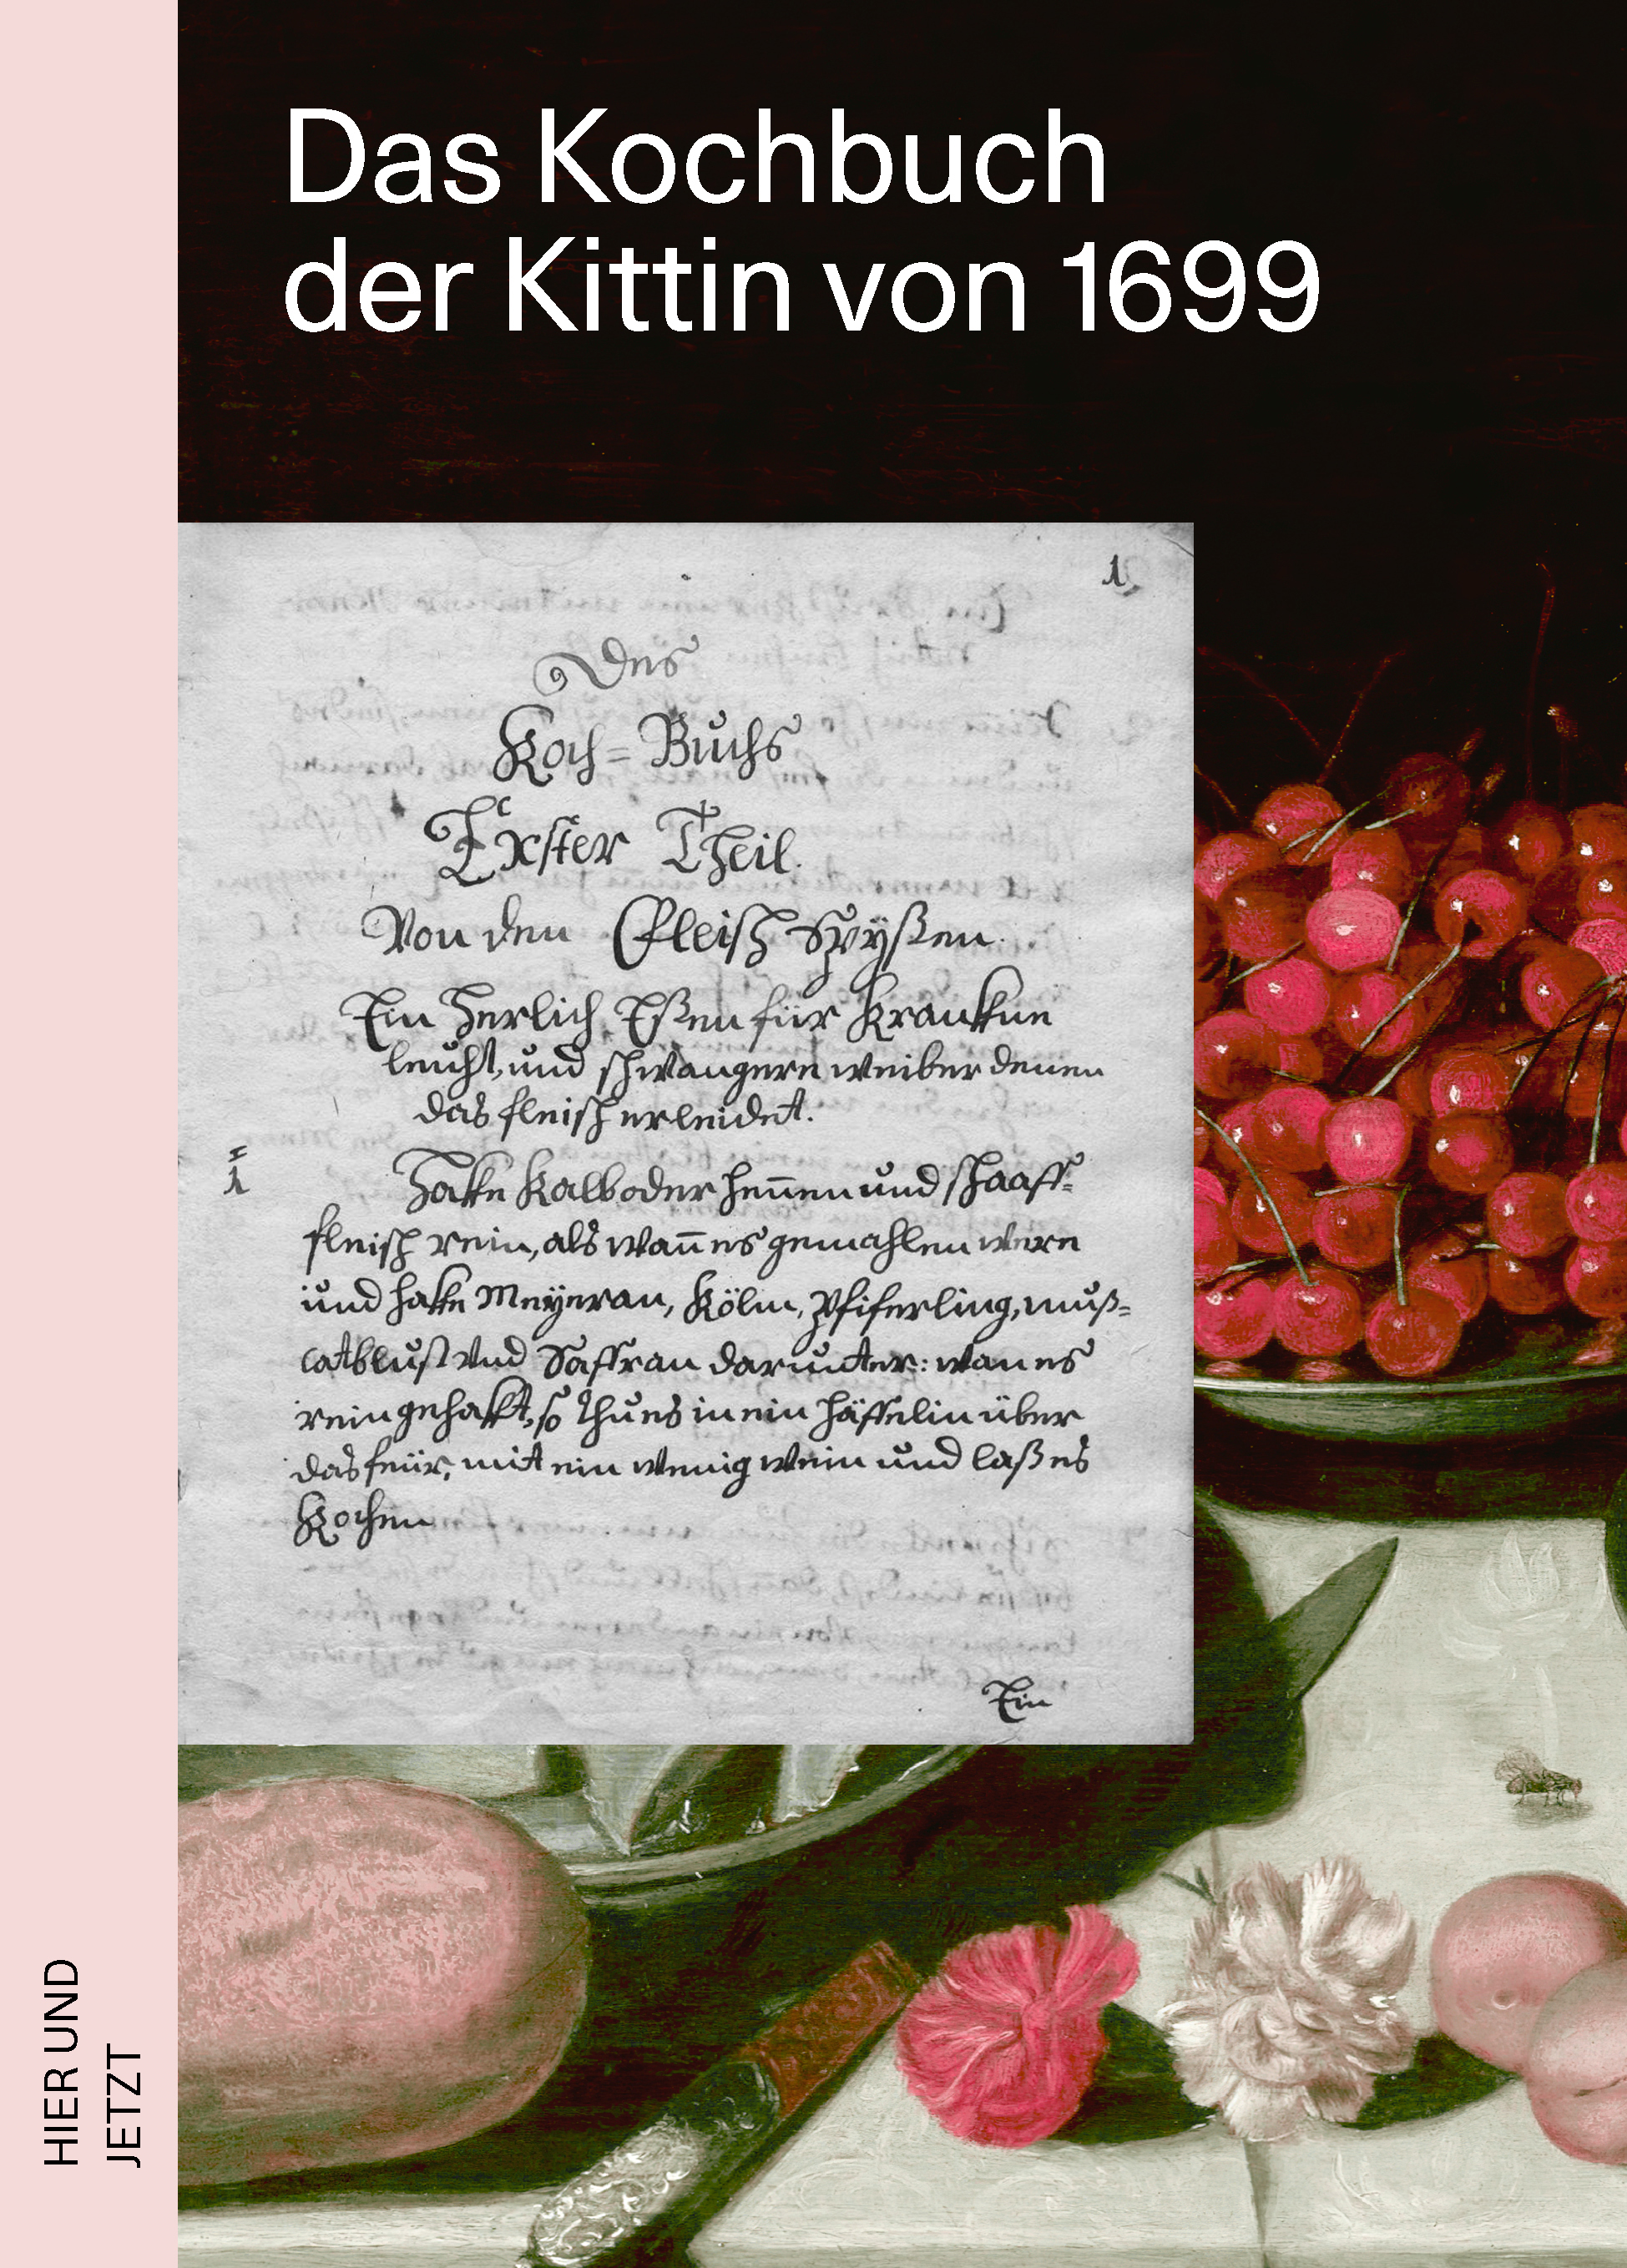 Das Kochbuch
der Kittin von 1699
1.
Des
Koch= Buchs
Erster Theil.
Von den Fleisch Spyßen.
Ein Herlich Eßen für Krankne
leücht, und schwangere weiber denen
das fleisch erleidet.
1
Hakke Kalb oder hen̄en und schaaff=
fleisch rein, als wan̄ es gemahlen were
und hakke Meyeran, Kölm, Pfiferling, muß=
catblust und Saffran darunter: wan es
rein gehakt, so thu es in ein häffelin über
das feür, mit ein wenig wein und laß es
Kochen
Ein
HIER UND
JETZT